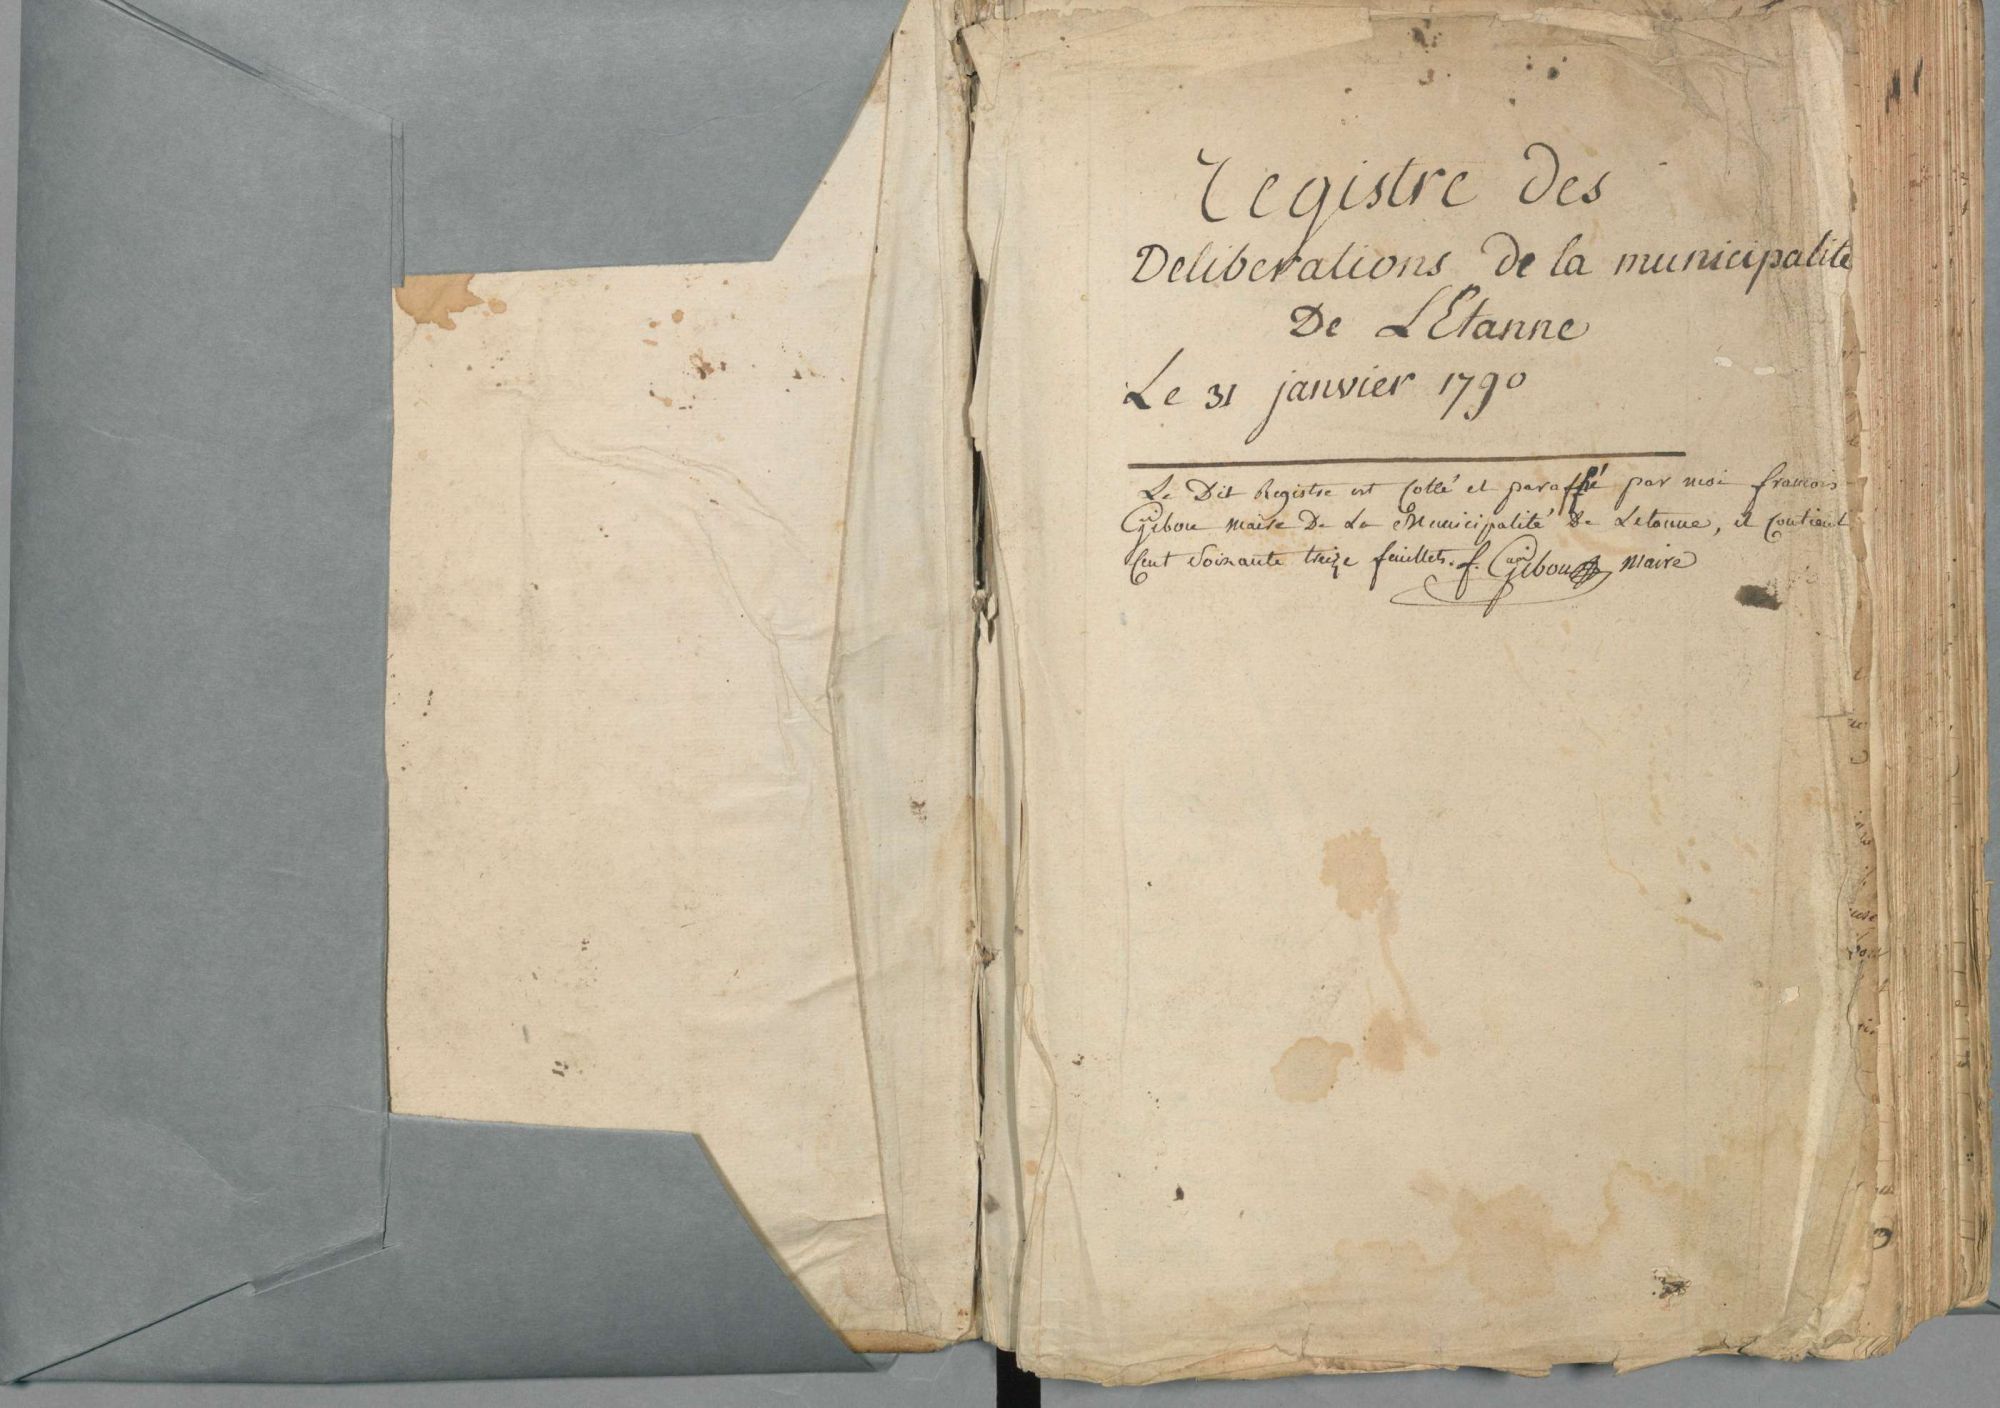 Registre Des
Deliberations De la municipalité
De LEtanne
Le 31 janvier 1790
Le Dit Registre est Cotté et paraffé par moi francois
Gibou maire De La Municipalité De Letanne, et Contient
Cent Soixante treize feuillets. f. Gibou maire